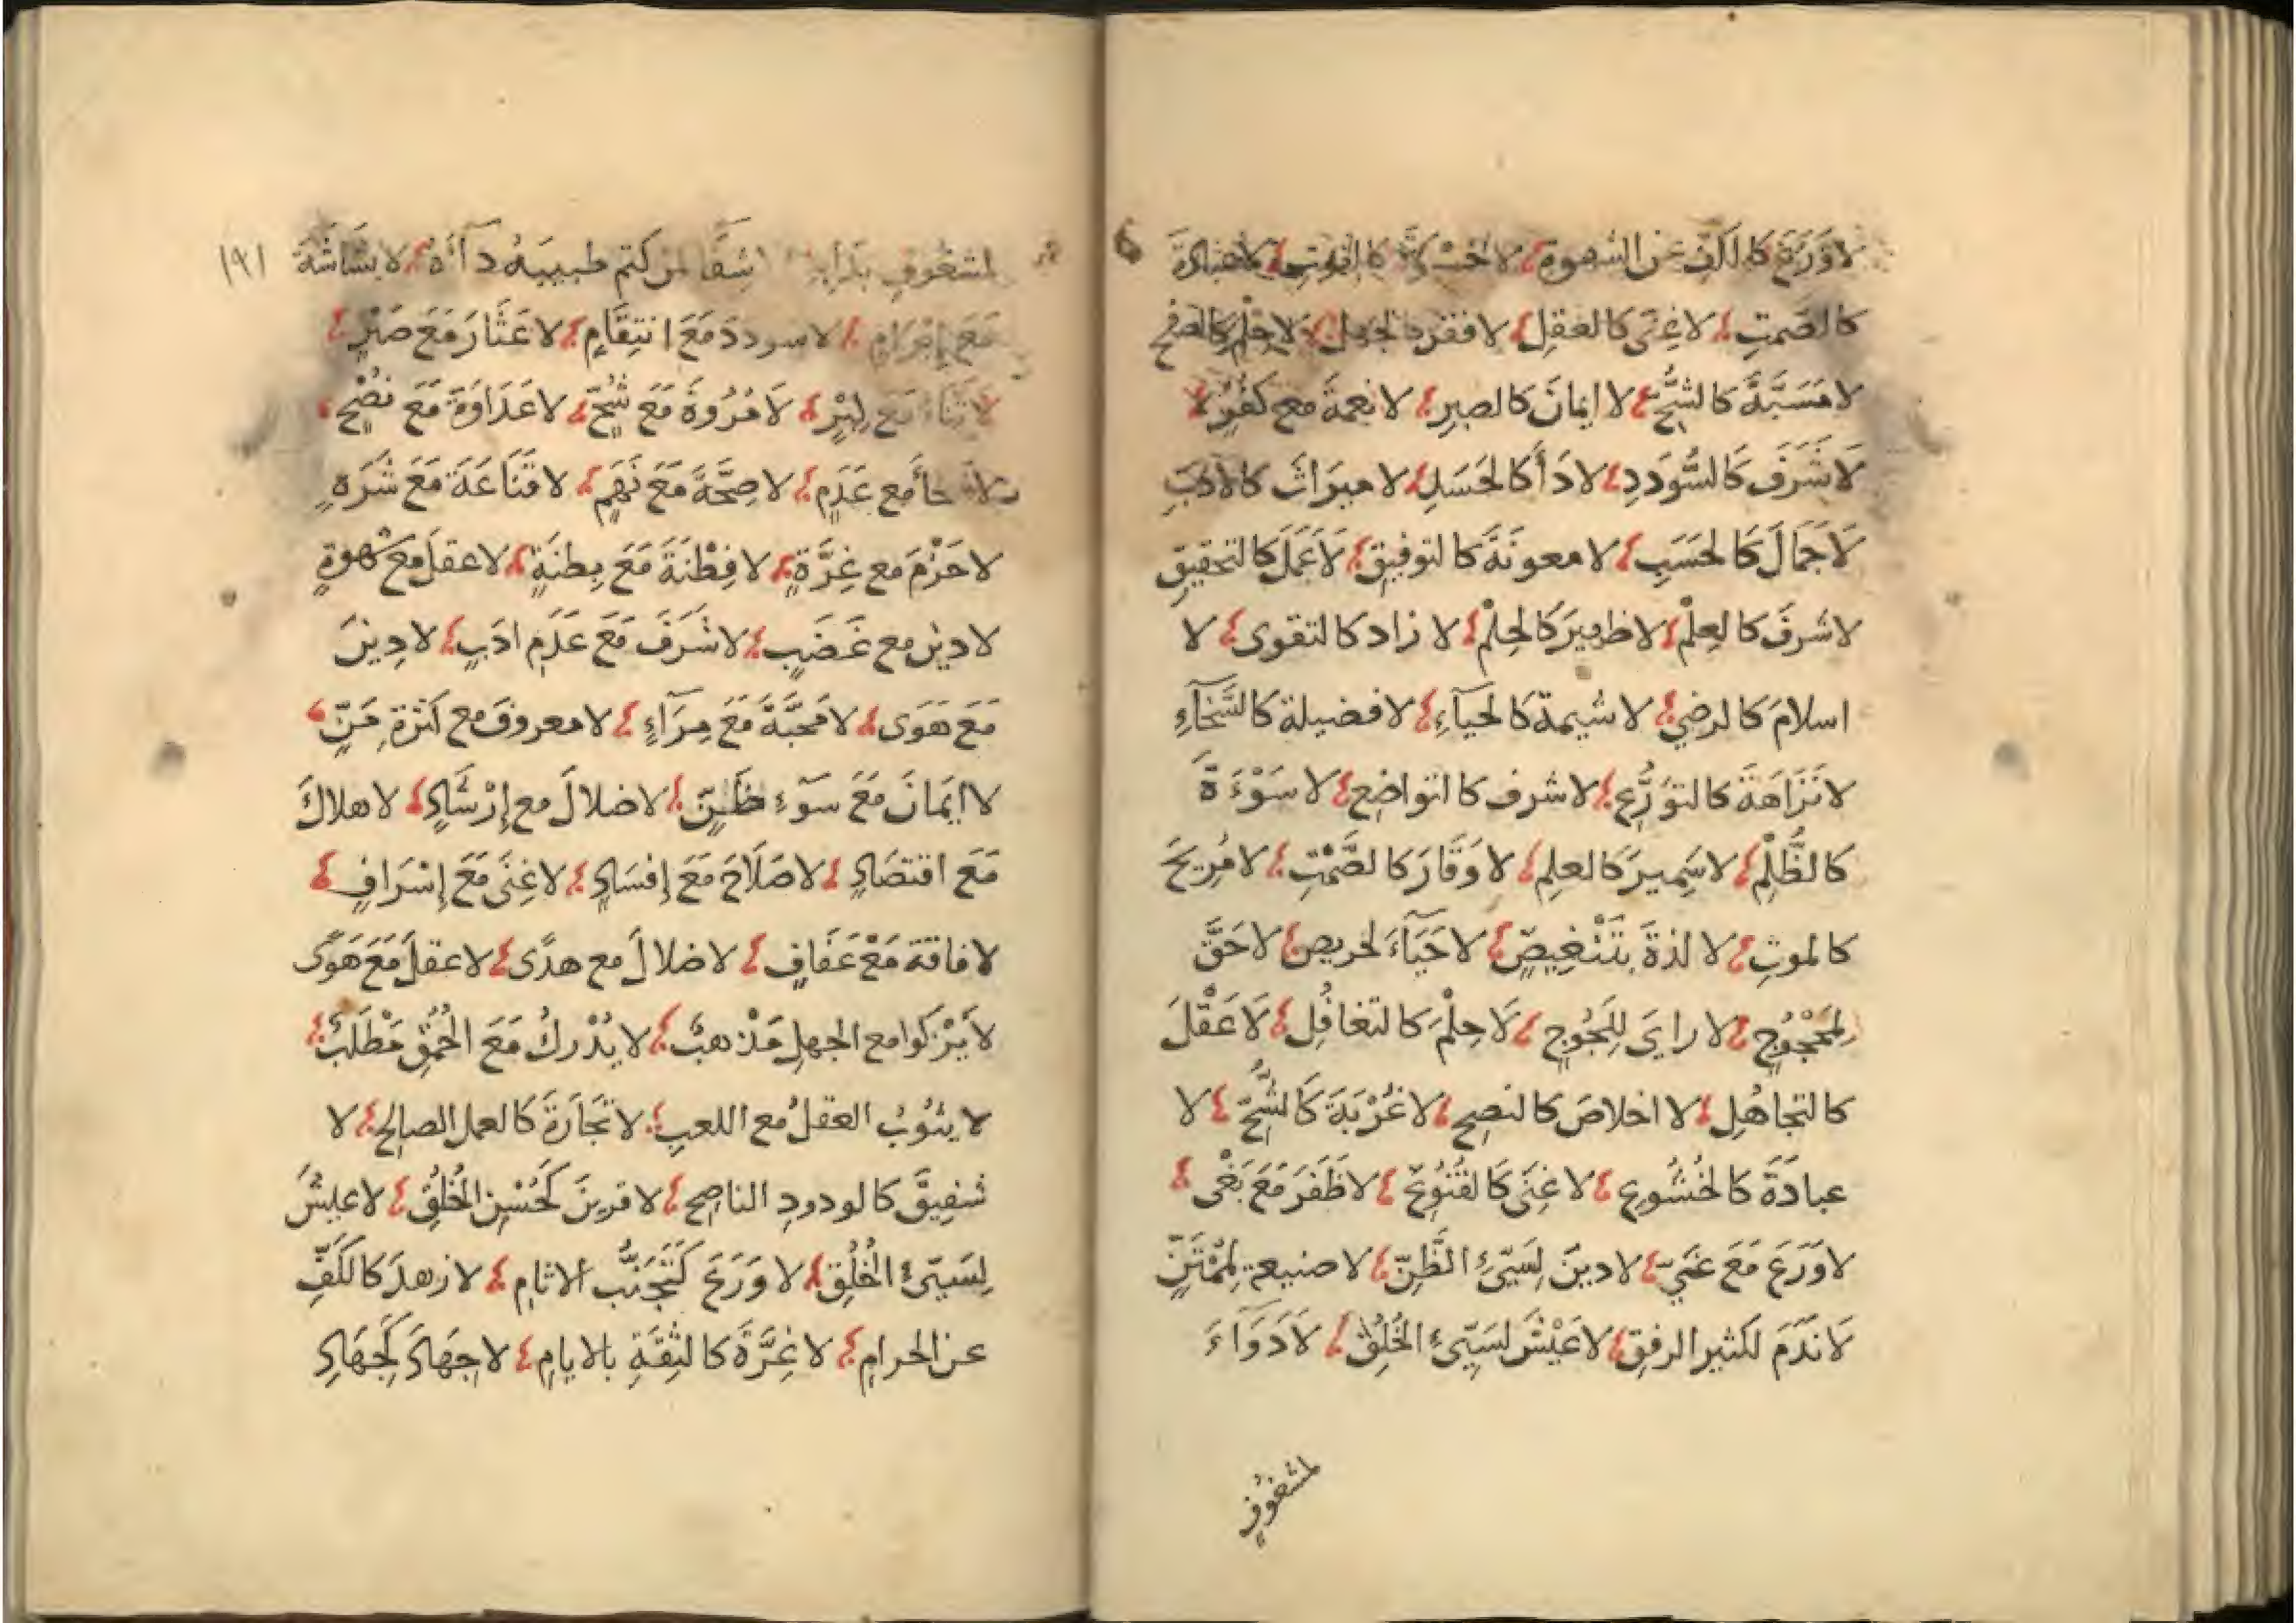 لا وَرَعَ كالكَفِّ عن الشهوة لا كالموتِ لا عبادةَ
كالصَمتِ لا غِنَى كالعقلِ لا فقر كالجهل لا حِلْم كالصفح
لا مَسَبَّةَ كالشُّحِّ لا ايمانَ كالصبرِ لا نعمةَ مع كُفُرٍ لا
لَا شَرَفَ كَالسُّودَدِ لا دَأ كالحَسَدِ لا ميرَاثَ كالادَبِ
لَا جَمَالَ كَالحَسَبِ لا معونَةَ كالتوفيقِ لَا عَمَلَ كالتحقيقِ
لا شرفَ كالعِلْمِ لا ظهيرَ كَالحِلْمِ لا زاد كالتقوى لا
اسلامَ كالرضى لا شيمة كالحيآءِ لا فضيلة كالسَّخآءِ
لا نَزَاهَةَ كالتوَرُّعِ لا شرف كالتواضعِ لا سَوْءَةَ
كالظُّلْمِ لا سَمِيرَ كالعلِم لا وَقَارَ كالصَّمْتِ لا مُرِيحَ
كالموتِ لا لذةَ بِتَنْغِيصٍ لا حَيَآءَ لحريصٍ لا حَقَّ
لِمَحْجُوجٍ لا رايَ لِلَجُوجٍ لَا حِلْمَ كالتغافُلِ لَا عَقْلَ
كالتجاهُلِ لا اخلاصَ كالنصِح لا غُرْبَةَ كَالشُّحِّ لا
عبادَةَ كالخُشُوعِ لا غِنَى كَالقُنُوعِ لا ظَفَرَ مَعَ بَغْى
لا وَرَعَ مَعَ غَيٍّ لا دينَ لِسَيّئِ الظَّنِّ لا صنيعة لِمُمْتَنٍّ
لَا نَدَمَ لكثير الرفقِ لا عَيْشَ لسَيّئِ الخُلُقِ لَا دَوَآءَ
لمشغوفٍ
لمشغُوفٍ بدَايِه شِفَا لمن كتم طبيبَهُ دآءَهُ لا بَشَاشَةَ
مَعَ إبْرَامٍ لا سوددَ مَعَ انتِقَامٍ لا عَثَارَ مَعَ صَبْرٍ
لا ثَنَاءَ مَع كِبْرٍ لَا مُرُوةَ مَع شُحّ لا عَدَاوَةَ مَع نُصْحٍ
مع عَدَمٍ لا صِحَّةَ مَعَ نَهَمٍ لا قَنَاعَةَ مَعَ شَرَهٍ
لا حَزْمَ مع غِرَّةٍ لا فِطْنَةَ مَعَ بِطنَةٍ لا عقلَ مع شهوةٍ
لا دين مع غَضَبٍ لا شَرَفَ مَعَ عَدَمِ ادَبٍ لا دِينَ
مَعَ هَوَى لا مَحبَّةَ مَعَ مِرَآءٍ لا معروفَ مع كثرةِ مَنٍّ
لا ايَمانَ مَعَ سَوءِ ظَنٍّ لا ضلالَ مع إرْشَادٍ لا هلاكَ
مَعَ اقتصَادٍ لا صَلَاحَ مَعَ إفسَادٍ لا غِنَى مَعَ إسْرَافٍ
لا فاقةَ مَعْ عَفَافٍ لا ضلالَ مع هدًى لا عقلَ مَعَ هَوًى
لا يَزْكوا مع الجهلِ مَذْهبٌ لا يُدْركُ مَعَ الحُمْقِ مَطْلَبٌ
لا يثُوبُ العقلُ مع اللعبِ لا تجَارَةَ كالعمل الصالحِ لا
شفِيقَ كالودودِ الناصِحِ لا قرينَ كَحُسْنِ الخُلُقِ لا عيشَ
لِسَيّئِ الخُلُقِ لا وَرَعَ كَتَجَنُّبِ الاثامِ لا زهدَ كَالكَفِّ
عن الحرامِ لا غِرَّةَ كالثِقَةِ بالايامِ لا جِهَادَ كَجِهَادِ
١٩١